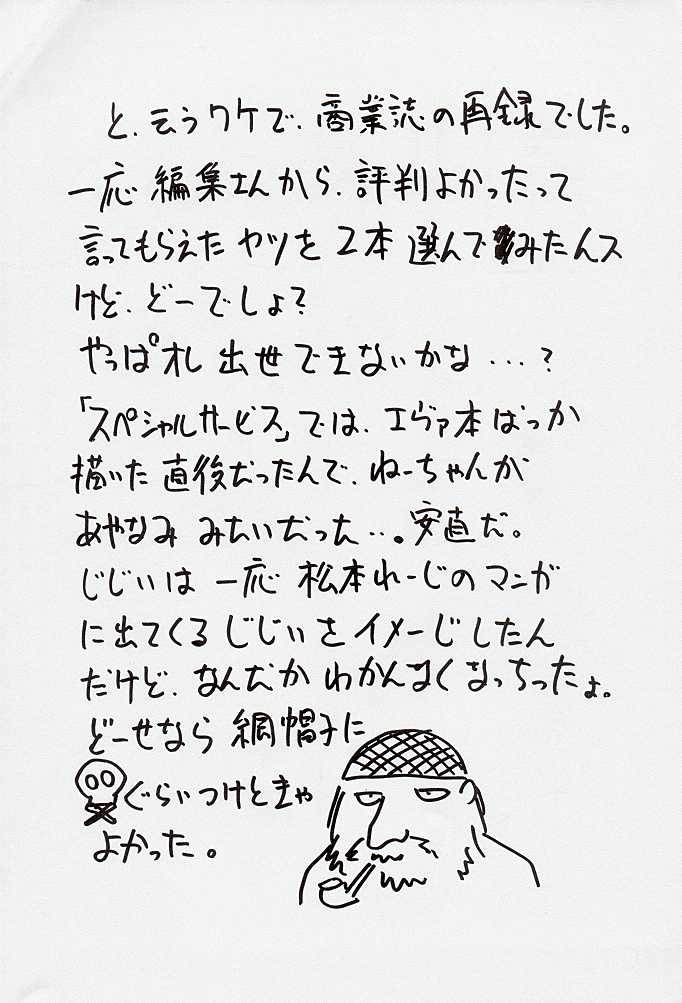 と、云うワケで、商業誌の再録でした。
一応 編集さんから、評判よかったって
言ってもらえた ヤツを 2本 選んで みたんス
けど、どーでしょ?
やっぱオレ 出世できないかな…?
「スペシャルサービス」では、エヴァ本ばっか
描いた 直後だったんで、ねーちゃんが
あやなみ みたいだった…。安直だ。
じじいは 一応 松本れーじのマンガ
に出てくる じじいをイメージしたん
だけど、なんだか わかんなくなっちったよ。
どーせなら 網帽子に
ぐらいつけときゃ
よかった。